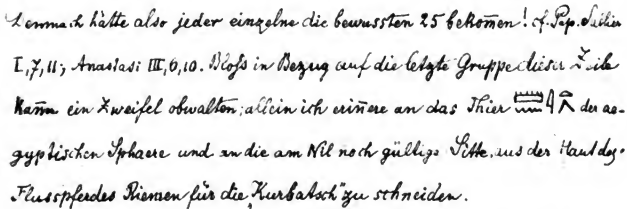 Demnach hätte also jeder einzelne die bewussten 25 bekom̄en! cf. Pap. Sallier
I,7,11; Anastasi III,6,10. Bloſs in Bezug auf die letzte Gruppe dieser Zeile
kan̄n ein Zweifel obwalten; allein ich erin̄ere an das Thier 𓏠𓈖𓇋 der ae-
gyptischen Sphaere und an die am Nil noch gültige Sitte, aus der Haut des
Flusspferdes Riemen für die „Kurbatsch" zu schneiden.